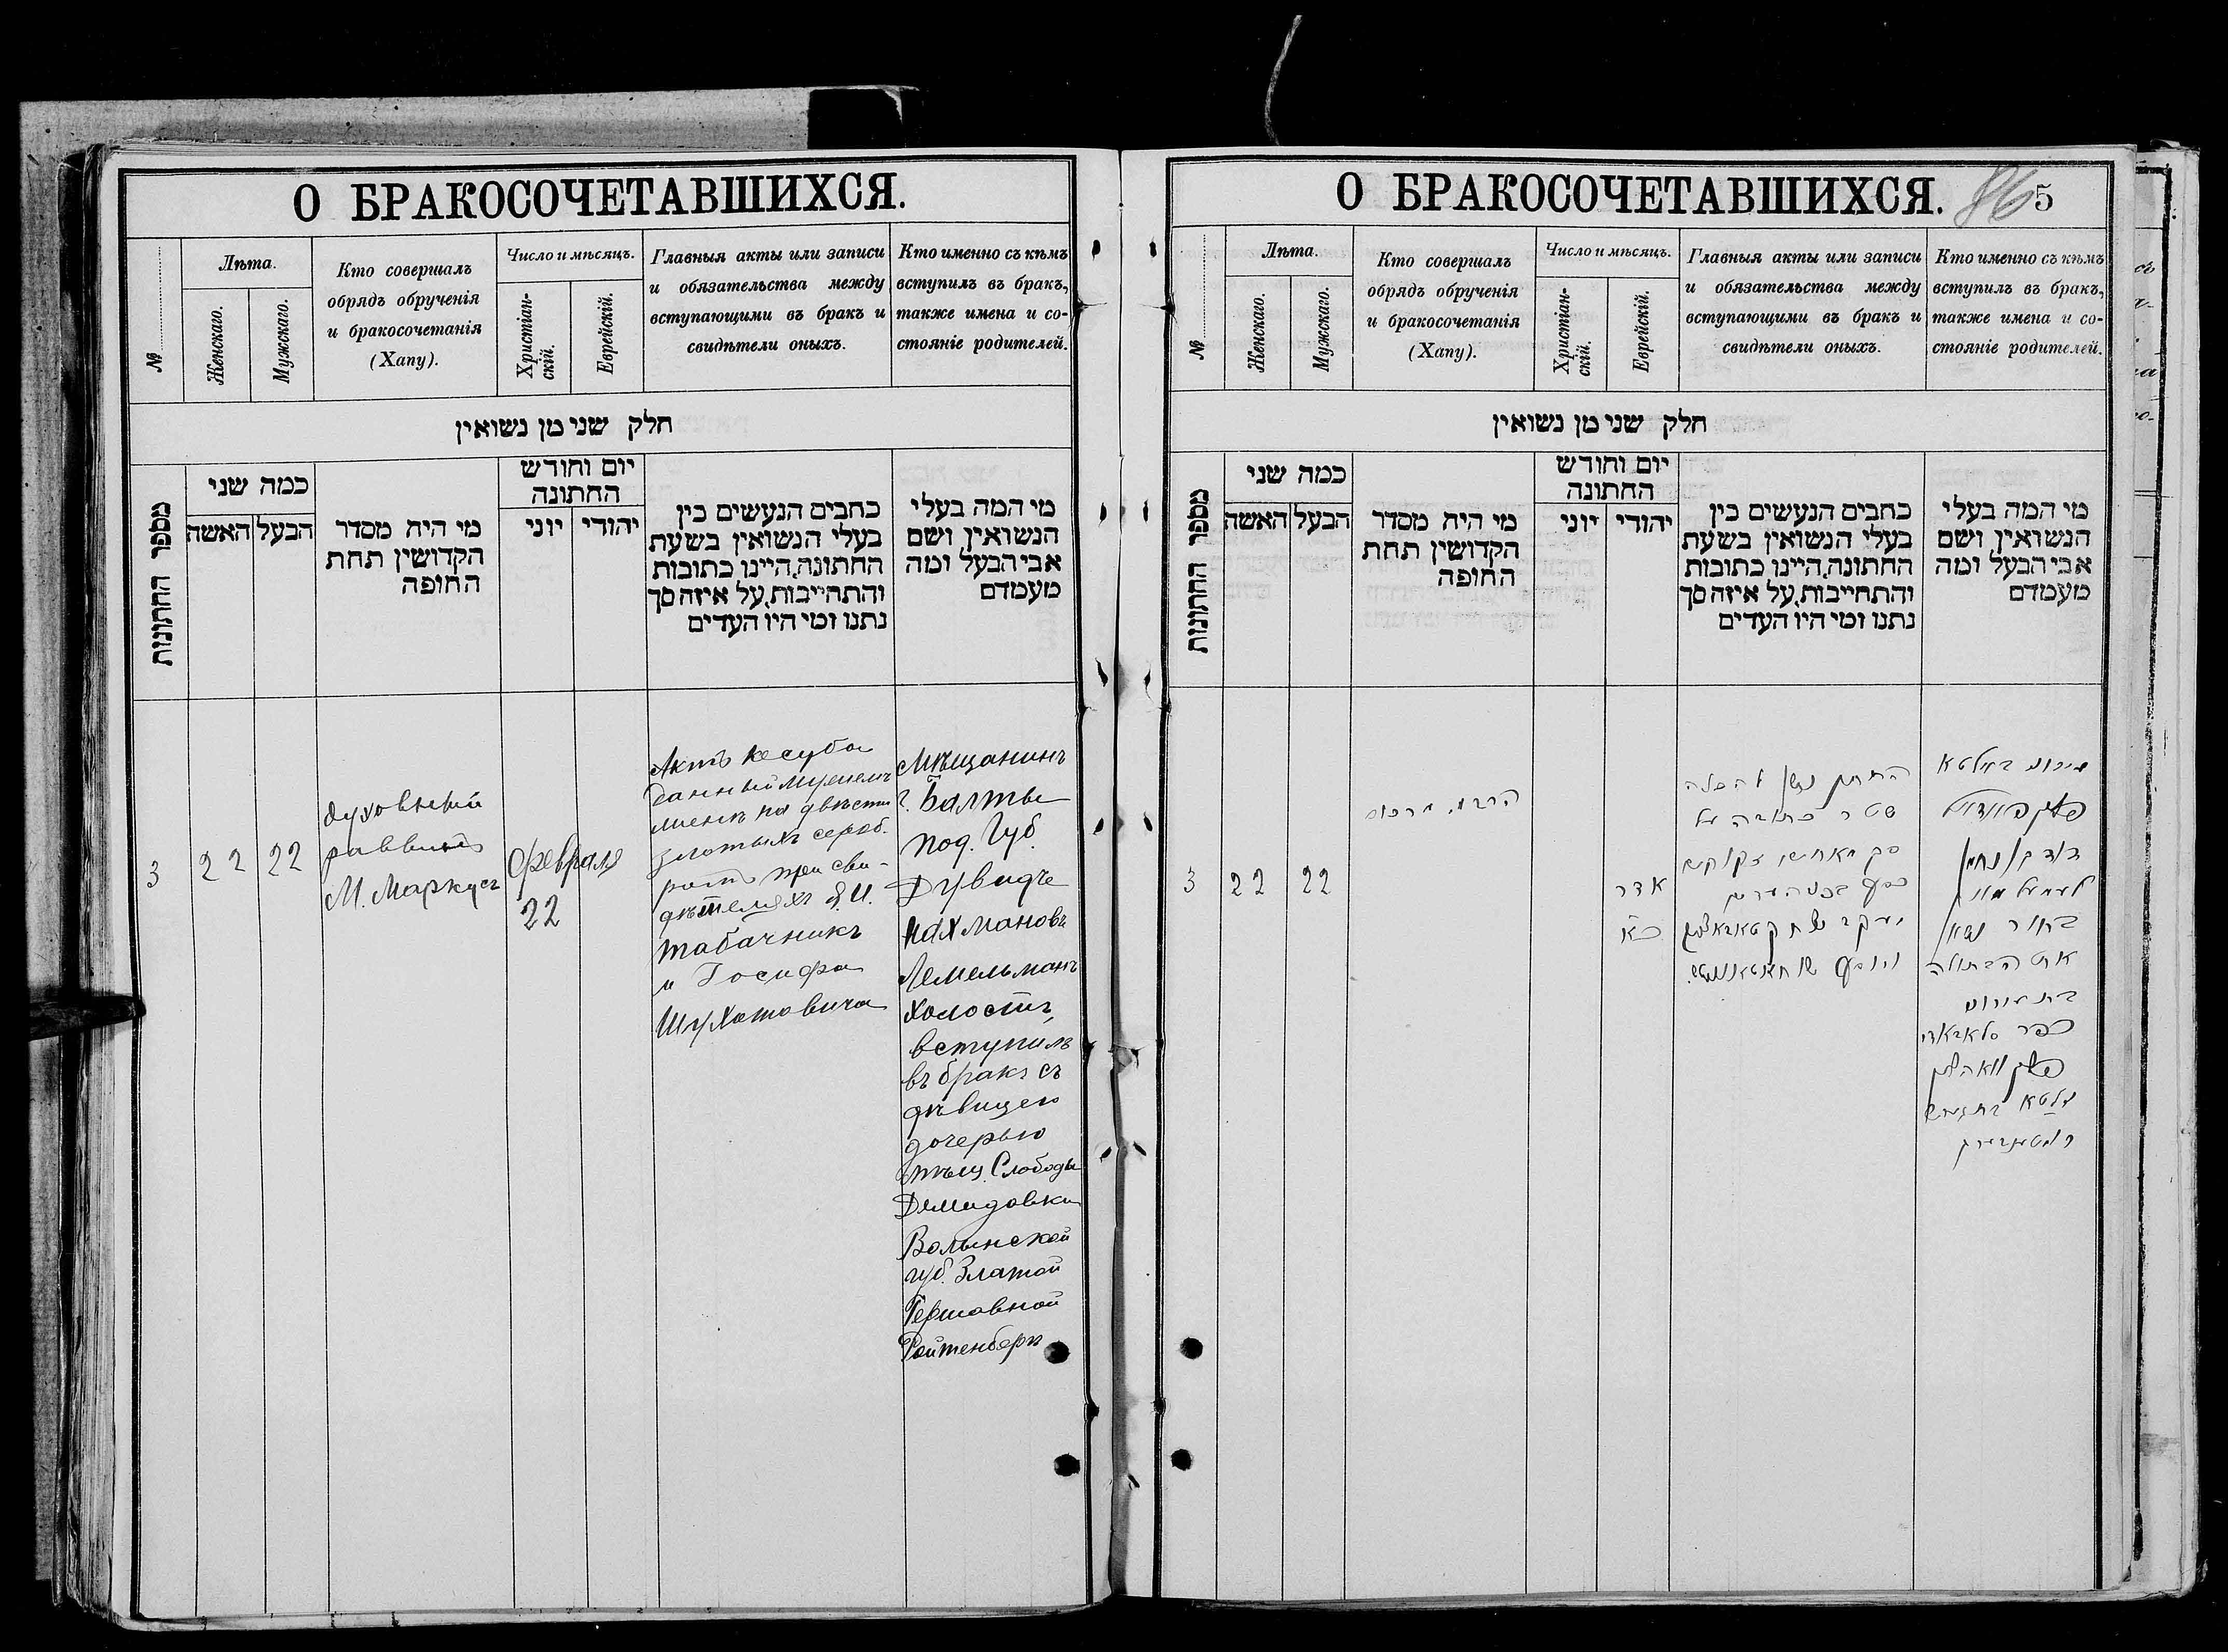 О БРАКОСОЧЕТАВШИХСЯ.
№
Лѣта.
Женскаго.
Мужскаго.
Кто совершалъ
обрядъ обрученія
и бракосочетанія
(Хапу).
Число и мѣсяцъ.
Христіан-
скій.
Еврейскій.
Главныя акты или записи
и обязательства между
вступающими въ бракъ и
свидѣтели оныхъ.
Кто именно съ кѣмъ
вступилъ въ бракъ,
также имена и со-
стояніе родителей.
חלק שני מן נשואין
מספר החתונות
כמה שני
האשה
הבעל
מי היה מסדר
הקדושין תחת
החופה
יום וחודש
החתונה
יוני
יהודי
כתבים הנעשים בין
בעלי הנשואין בשעת
החתונה, היינו כתובות
והתחייבות, על איזה סך
נתנו ומי היו העדים
מי המה בעלי
הנשואין ושם
אבי הבעל ומה
מעמדם
3
22
22
духовный
раввинъ
М. Маркусъ
Февраля
22
Актъ кесуба
данный
на двѣсти
злотыхъ сереб.
при сви-
дѣтеляхъ
Табачникъ
и Госифа
Шухатовича
Мѣщанинъ
г. Балты
Под. Губ.
Дувидъ
Нахмановъ
Лемельманъ
холостъ,
вступилъ
въ бракъ съ
дѣвицею
дочерью
мѣщ. Слободы
Демидовки
Волынской
губ. Златой
Гершовной
Ройтенбергъ
О БРАКОСОЧЕТАВШИХСЯ.
86
5
№
Лѣта.
Женскаго.
Мужскаго.
Кто совершалъ
обрядъ обрученія
и бракосочетанія
(Хапу).
Число и мѣсяцъ.
Христіан-
скій.
Еврейскій.
Главныя акты или записи
и обязательства между
вступающими въ бракъ и
свидѣтели оныхъ.
Кто именно съ кѣмъ
вступилъ въ бракъ,
также имена и со-
стояніе родителей.
חלק שני מן נשואין
מספר החתונות
כמה שני
האשה
הבעל
מי היה מסדר
הקדושין תחת
החופה
יום וחודש
החתונה
יוני
יהודי
כתבים הנעשים בין
בעלי הנשואין בשעת
החתונה, היינו כתובות
והתחייבות, על איזה סך
נתנו ומי היו העדים
מי המה בעלי
הנשואין ושם
אבי הבעל ומה
מעמדם
3
22
22
הרב מ. מרכוס
אדר
החתן נתן להכלה
שטר כתובה על
סך מאתים זקוקים
כסף
יעקב
מעיר באלטא
דוד בן נחמן
לעמעלמאן
בחור נשא
את הבתולה
בת
כפר